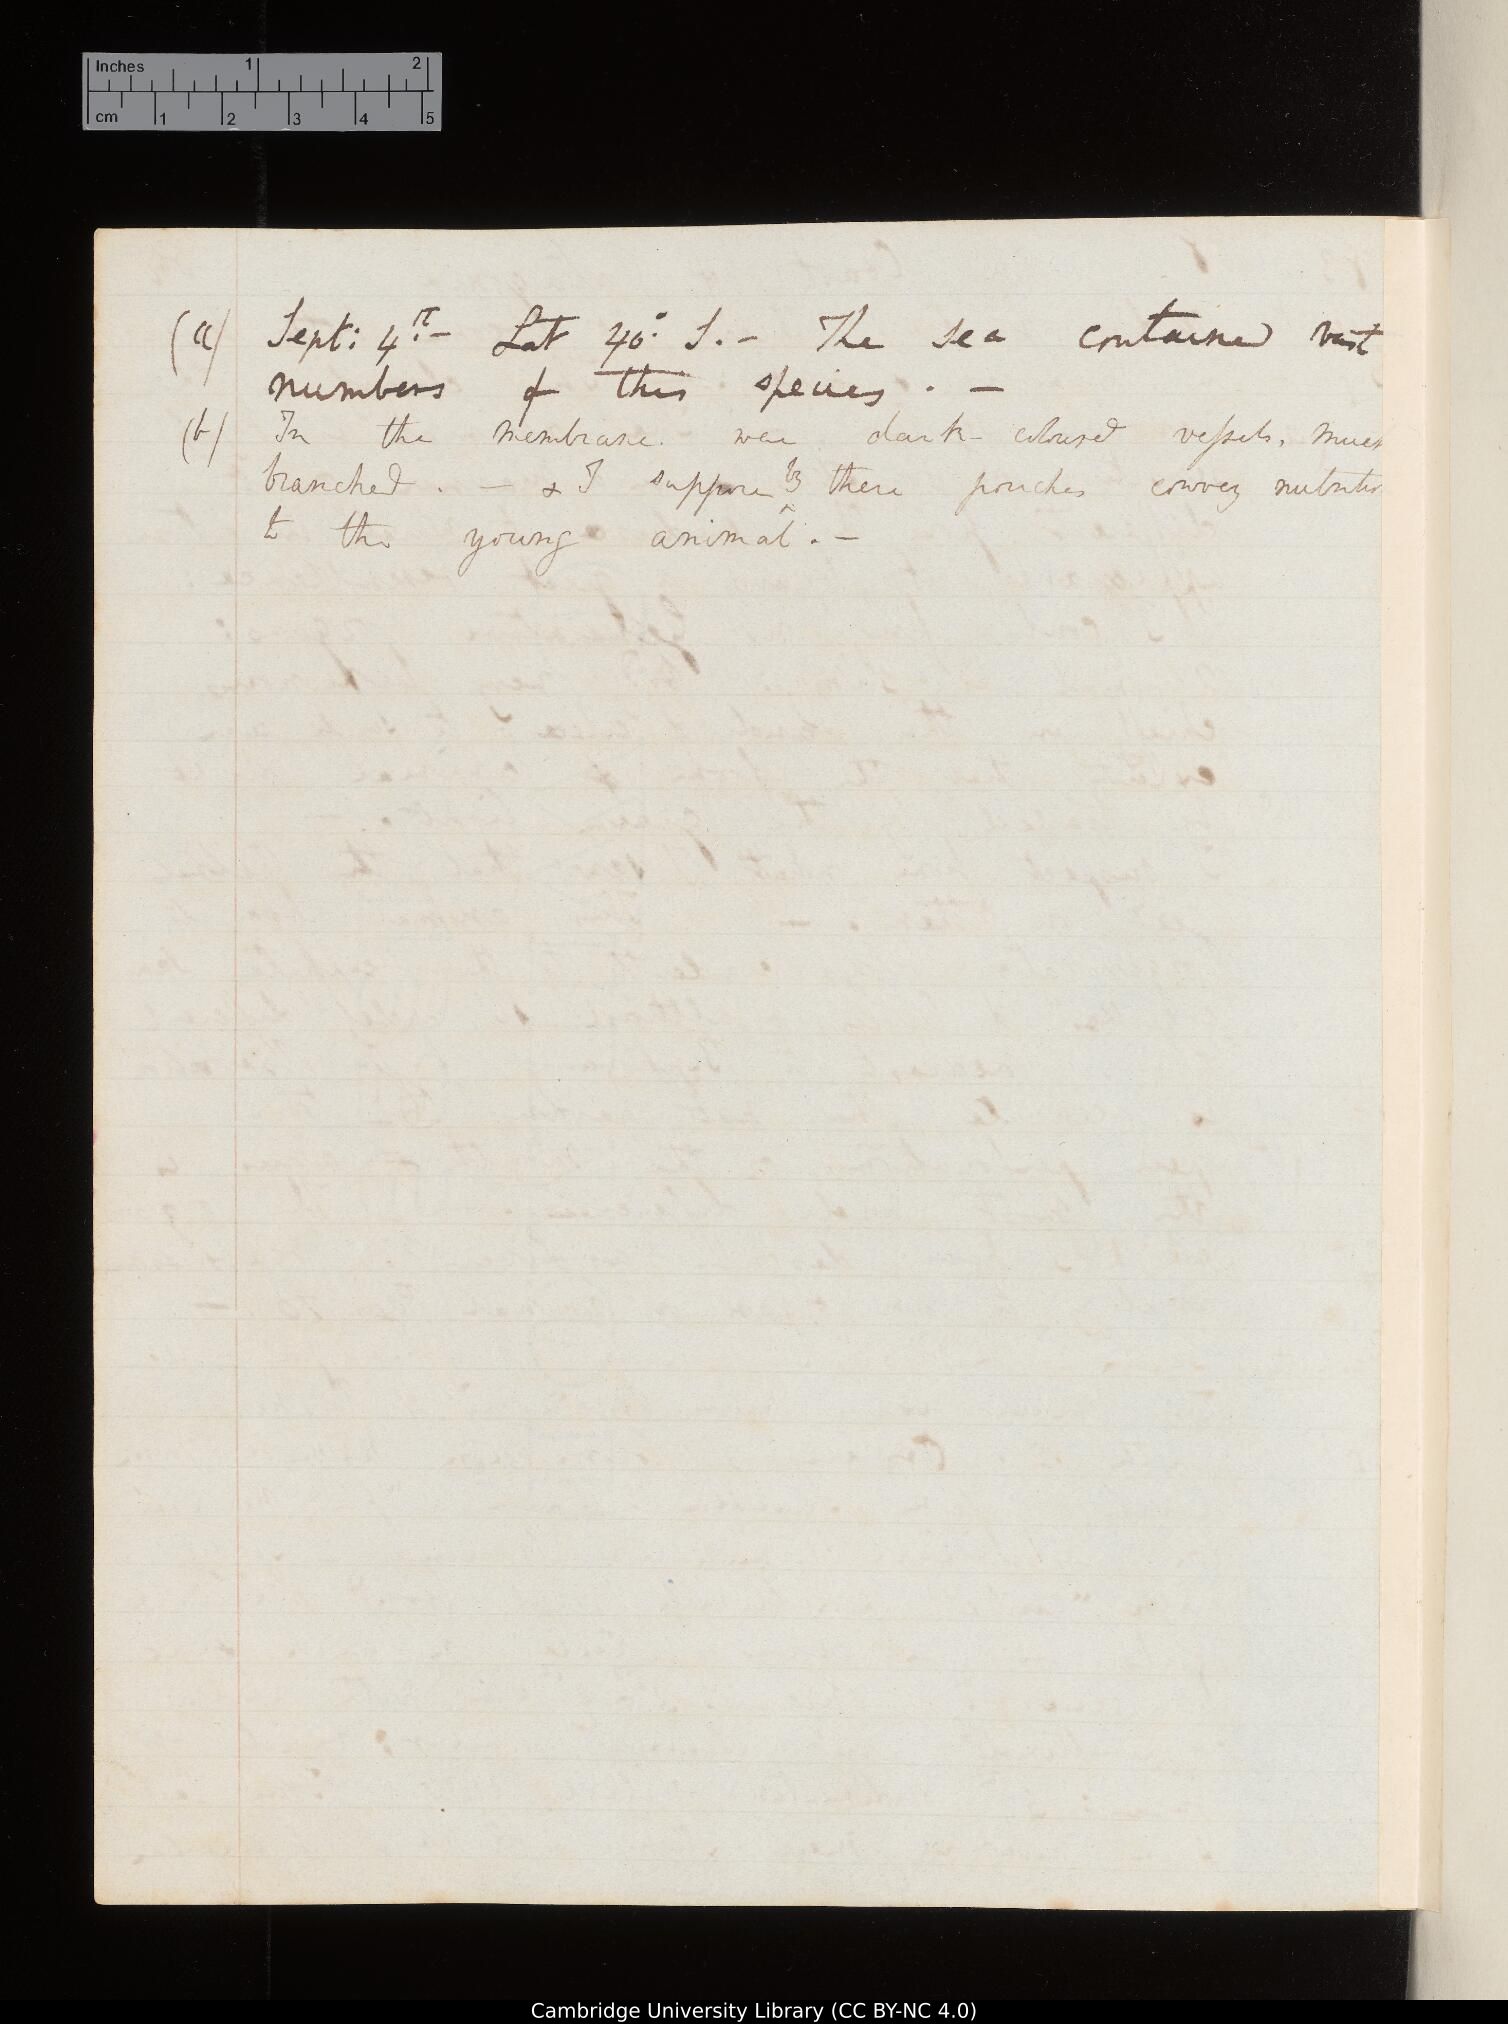 Inches 1 2
cm 1 2 3 4 5
(a) Sept: 4th.— Lat 40°. S. — The sea contained vast
numbers of this species. —
(b) In the membrane. were dark-coloured vessels, much
branched. — & I suppose by these pouches convey nutrition
to the young animal. —
Cambridge University Library (CC BY-NC 4.0)